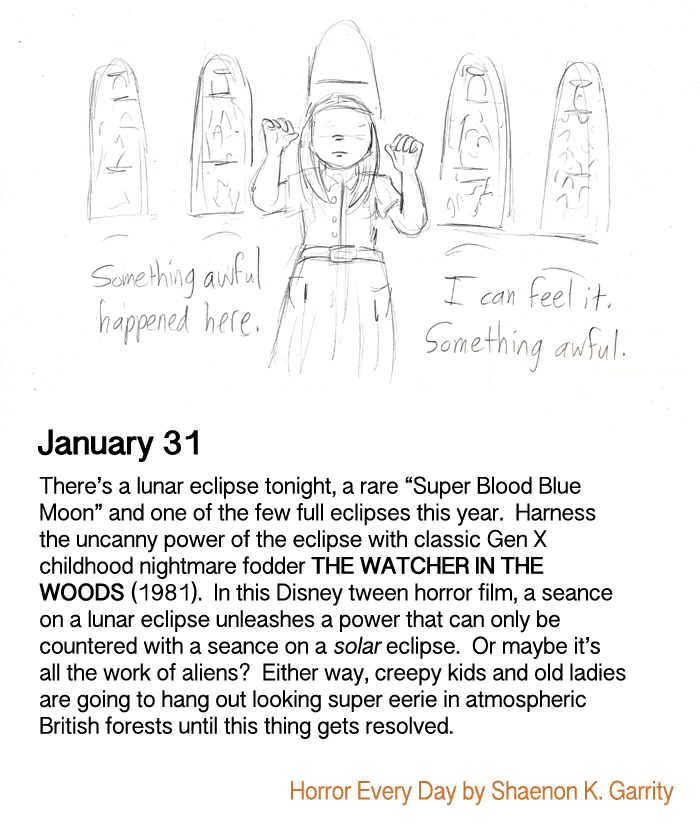 Something awful
happened here.
I can feel it.
Something awful.
January 31
There's a lunar eclipse tonight, a rare “Super Blood Blue
Moon” and one of the few full eclipses this year.  Harness
the uncanny power of the eclipse with classic Gen X
childhood nightmare fodder THE WATCHER IN THE
WOODS (1981).  In this Disney tween horror film, a seance
on a lunar eclipse unleashes a power that can only be
countered with a seance on a solar eclipse.  Or maybe it's
all the work of aliens?  Either way, creepy kids and old ladies
are going to hang out looking super eerie in atmospheric
British forests until this thing gets resolved.
Horror Every Day by Shaenon K. Garrity